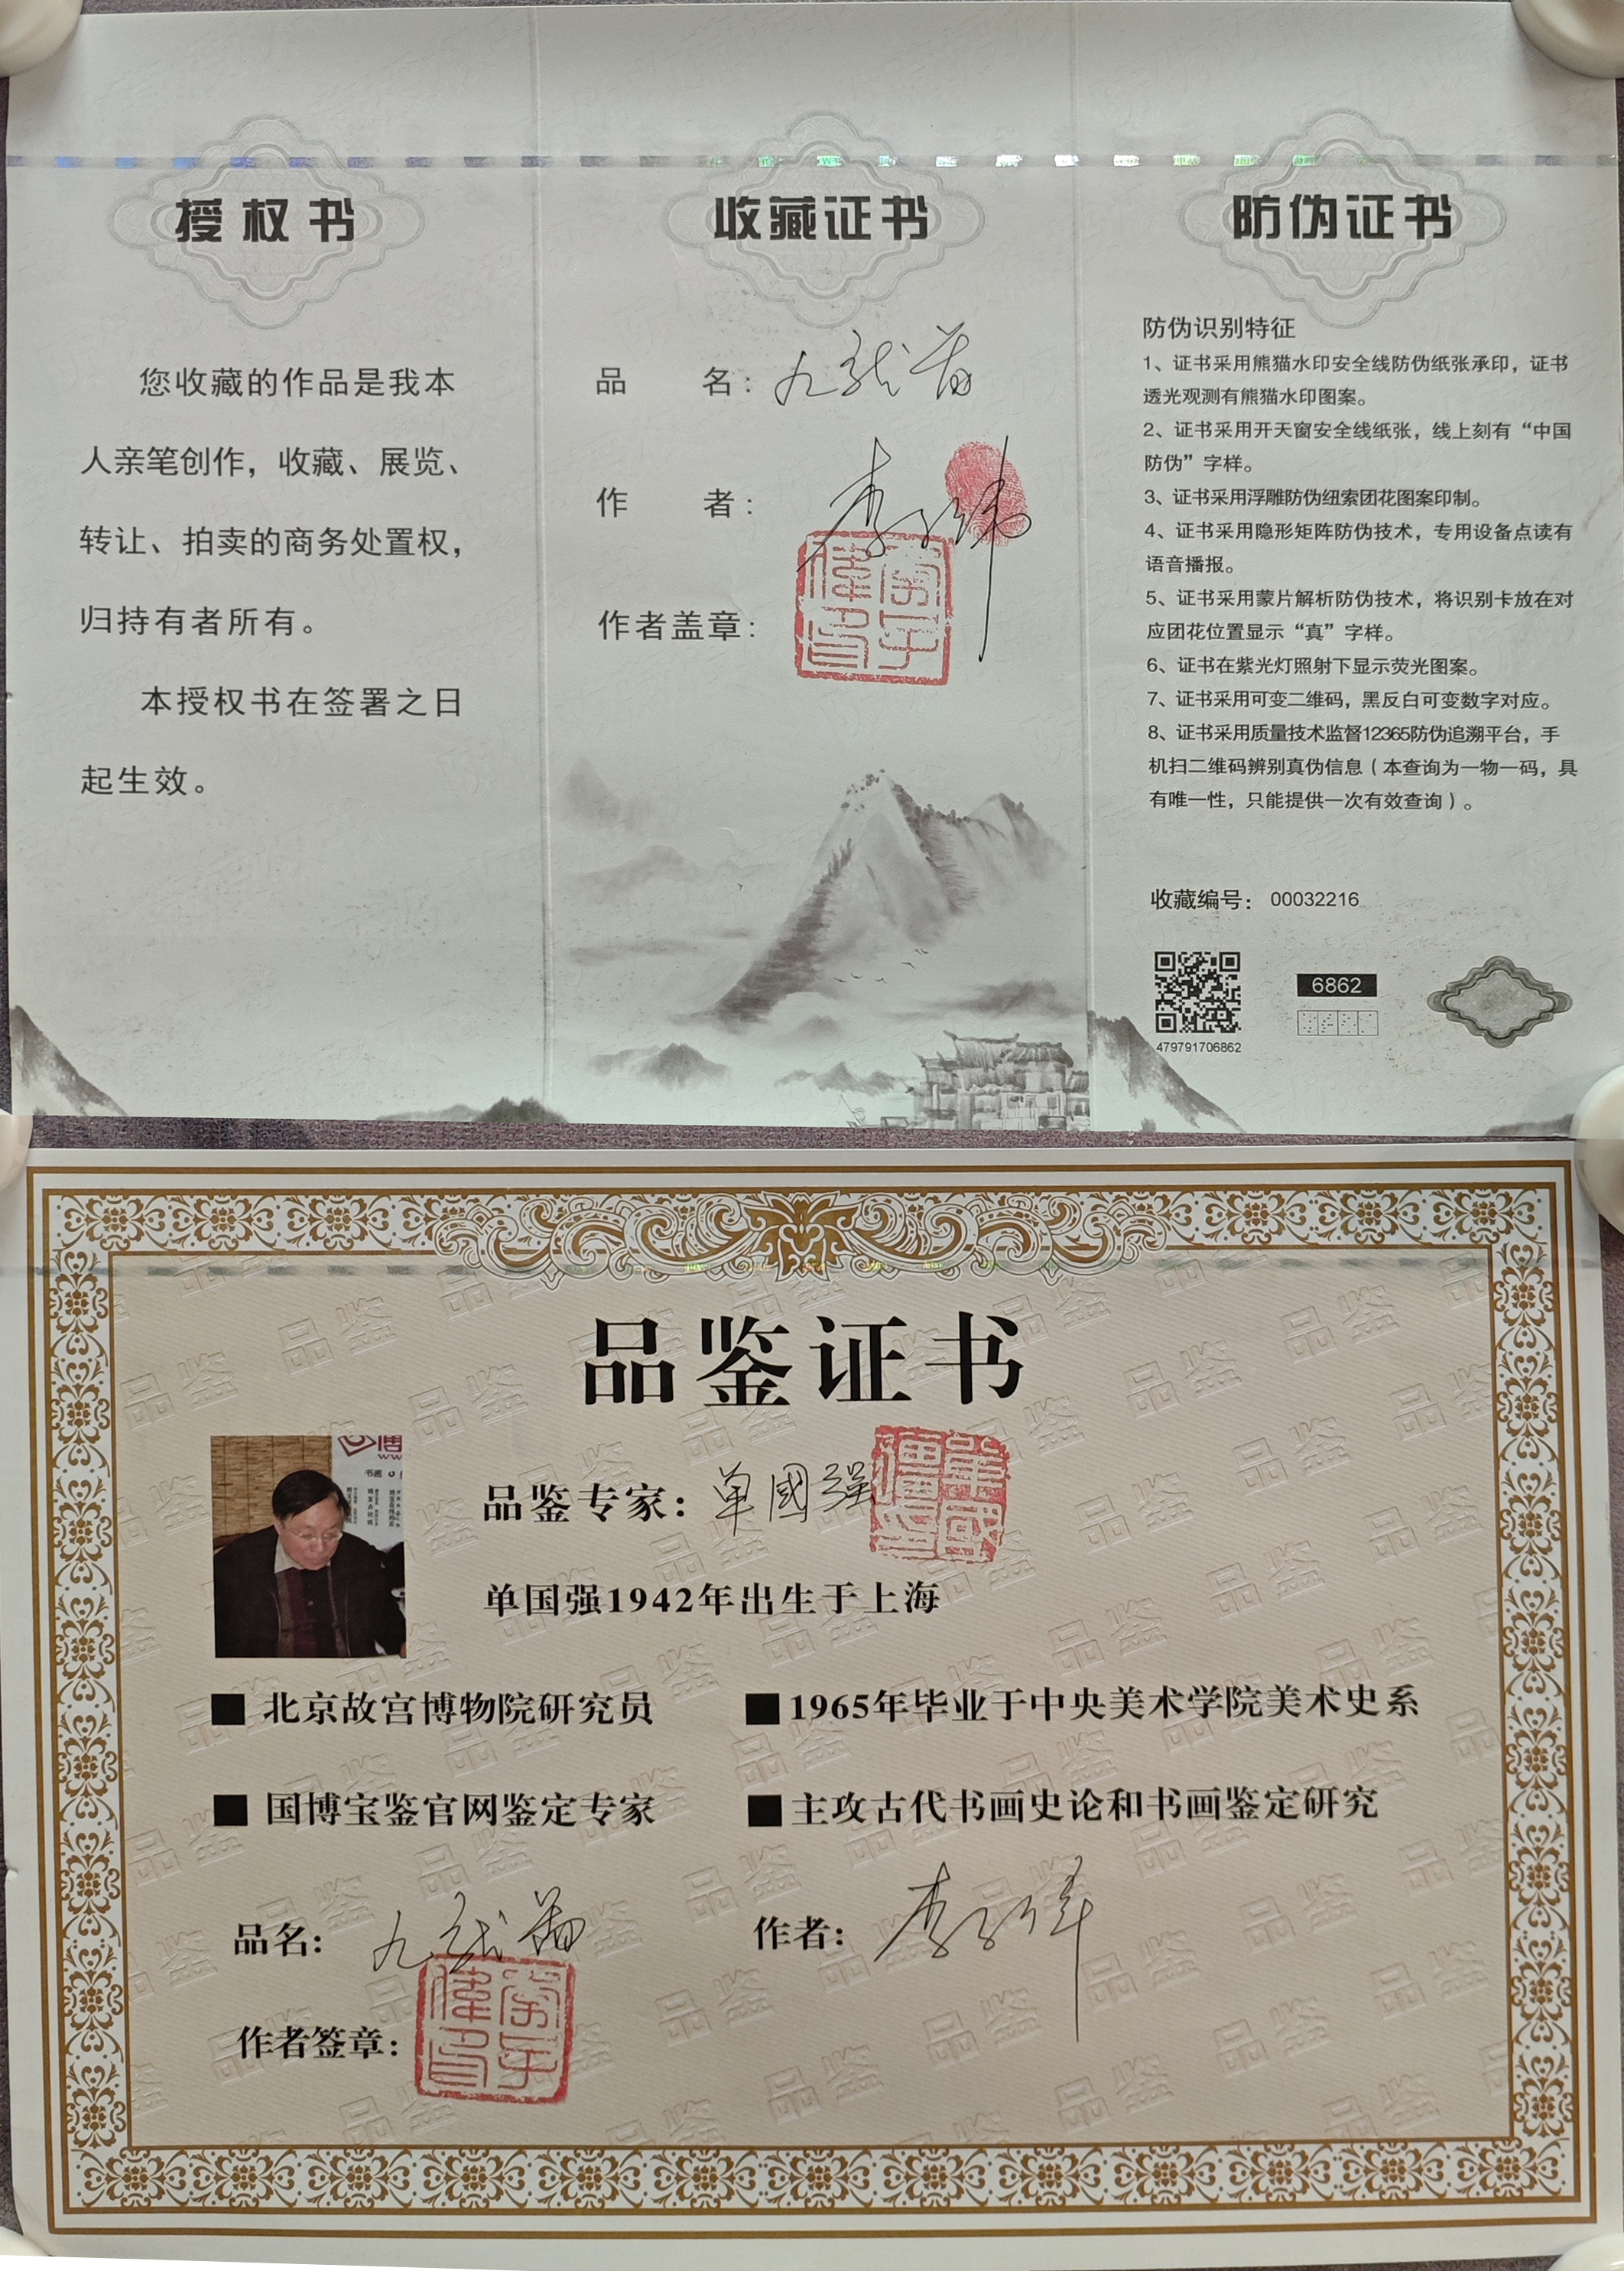 授权书
您收藏的作品是我本
人亲笔创作，收藏、展览、
转让、拍卖的商务处置权，
归持有者所有。
本授权书在签署之日
起生效。
收藏证书
品 名：九龙图
作 者：李子伟
作者盖章：
防伪证书
防伪识别特征
1、证书采用熊猫水印安全线防伪纸张承印，证书
透光观测有熊猫水印图案。
2、证书采用开天窗安全线纸张，线上刻有“中国
防伪”字样。
3、证书采用浮雕防伪纽索团花图案印制。
4、证书采用隐形矩阵防伪技术，专用设备点读有
语音播报。
5、证书采用蒙片解析防伪技术，将识别卡放在对
应团花位置显示“真”字样。
6、证书在紫光灯照射下显示荧光图案。
7、证书采用可变二维码，黑反白可变数字对应。
8、证书采用质量技术监督12365防伪追溯平台，手
机扫二维码辨别真伪信息（本查询为一物一码，具
有唯一性，只能提供一次有效查询）。
收藏编号：00032216
6862
479791706862
品鉴证书
品鉴专家：单國强
单国强1942年出生于上海
■ 北京故宫博物院研究员
■ 1965年毕业于中央美术学院美术史系
■ 国博宝鉴官网鉴定专家
■ 主攻古代书画史论和书画鉴定研究
品名：九龙图
作者：李子伟
作者签章：